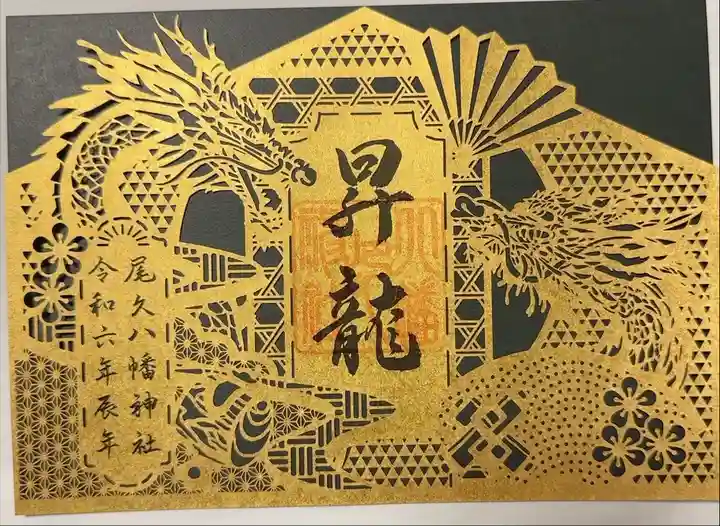 昇龍
尾久八幡神社
令和六年辰年